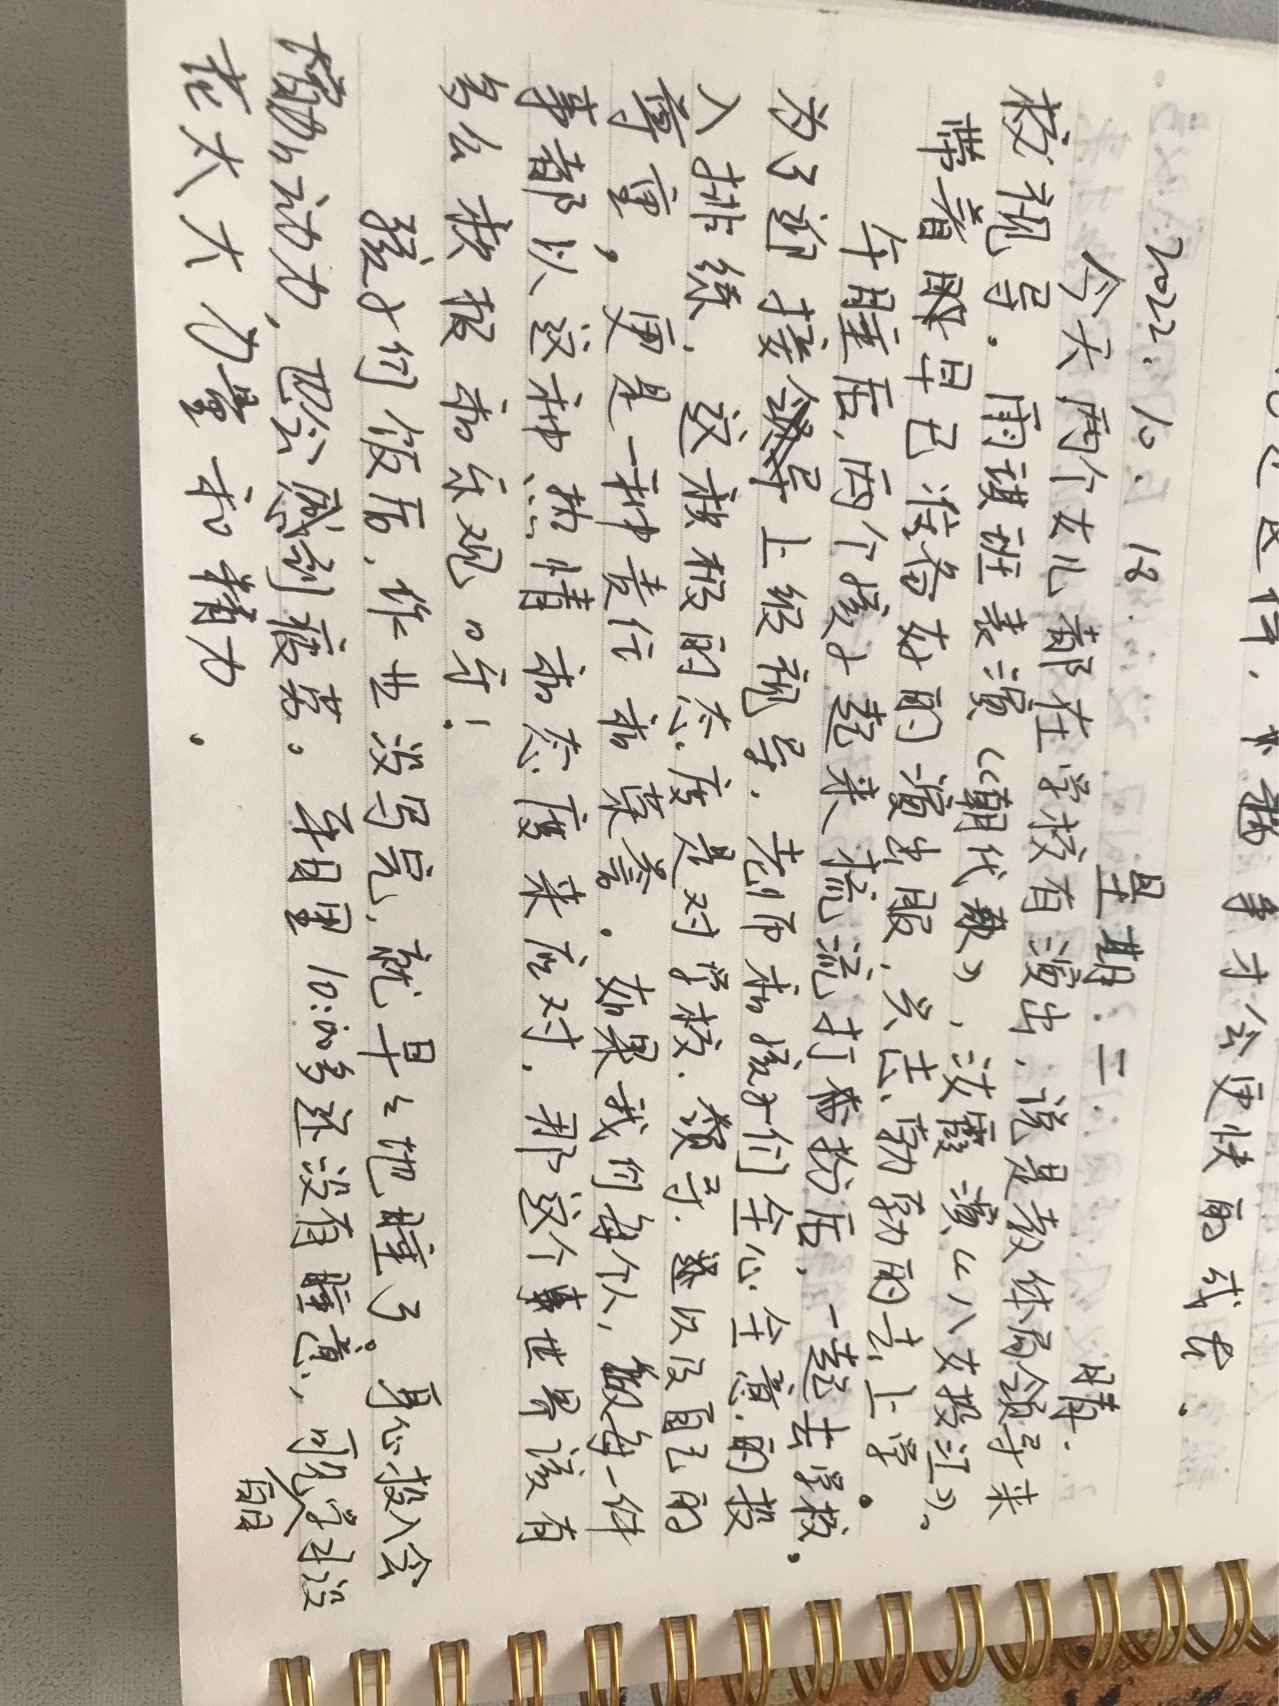 才会更快的成长。
2022.10.18.星期二 晴.
今天两个女儿都在学校有演出，说是教体局领导来
校视导。雨祺班表演《朝代歌》，汝霞演《八女投江》。
带着早已准备好的演出服，兴志勃勃的去上学。
午睡后，两个孩子起来梳洗打扮后，一起去学校。
为了迎接上级视导，老师和孩子们全心全意的投
入排练，这积极的态度是对学校、领导、以及自己的
尊重，更是一种责任和荣誉。如果我们每个人，做每一件
事都以这种热情和态度来应对，那这个世界该有
多么积极和乐观的呀！
孩子们饭后，作业没写完，就早早地睡了。身心投入会
增加动力，也会感到疲劳。平日里10:00多还没有睡意，可见学习没
有用
花太大力量和精力。